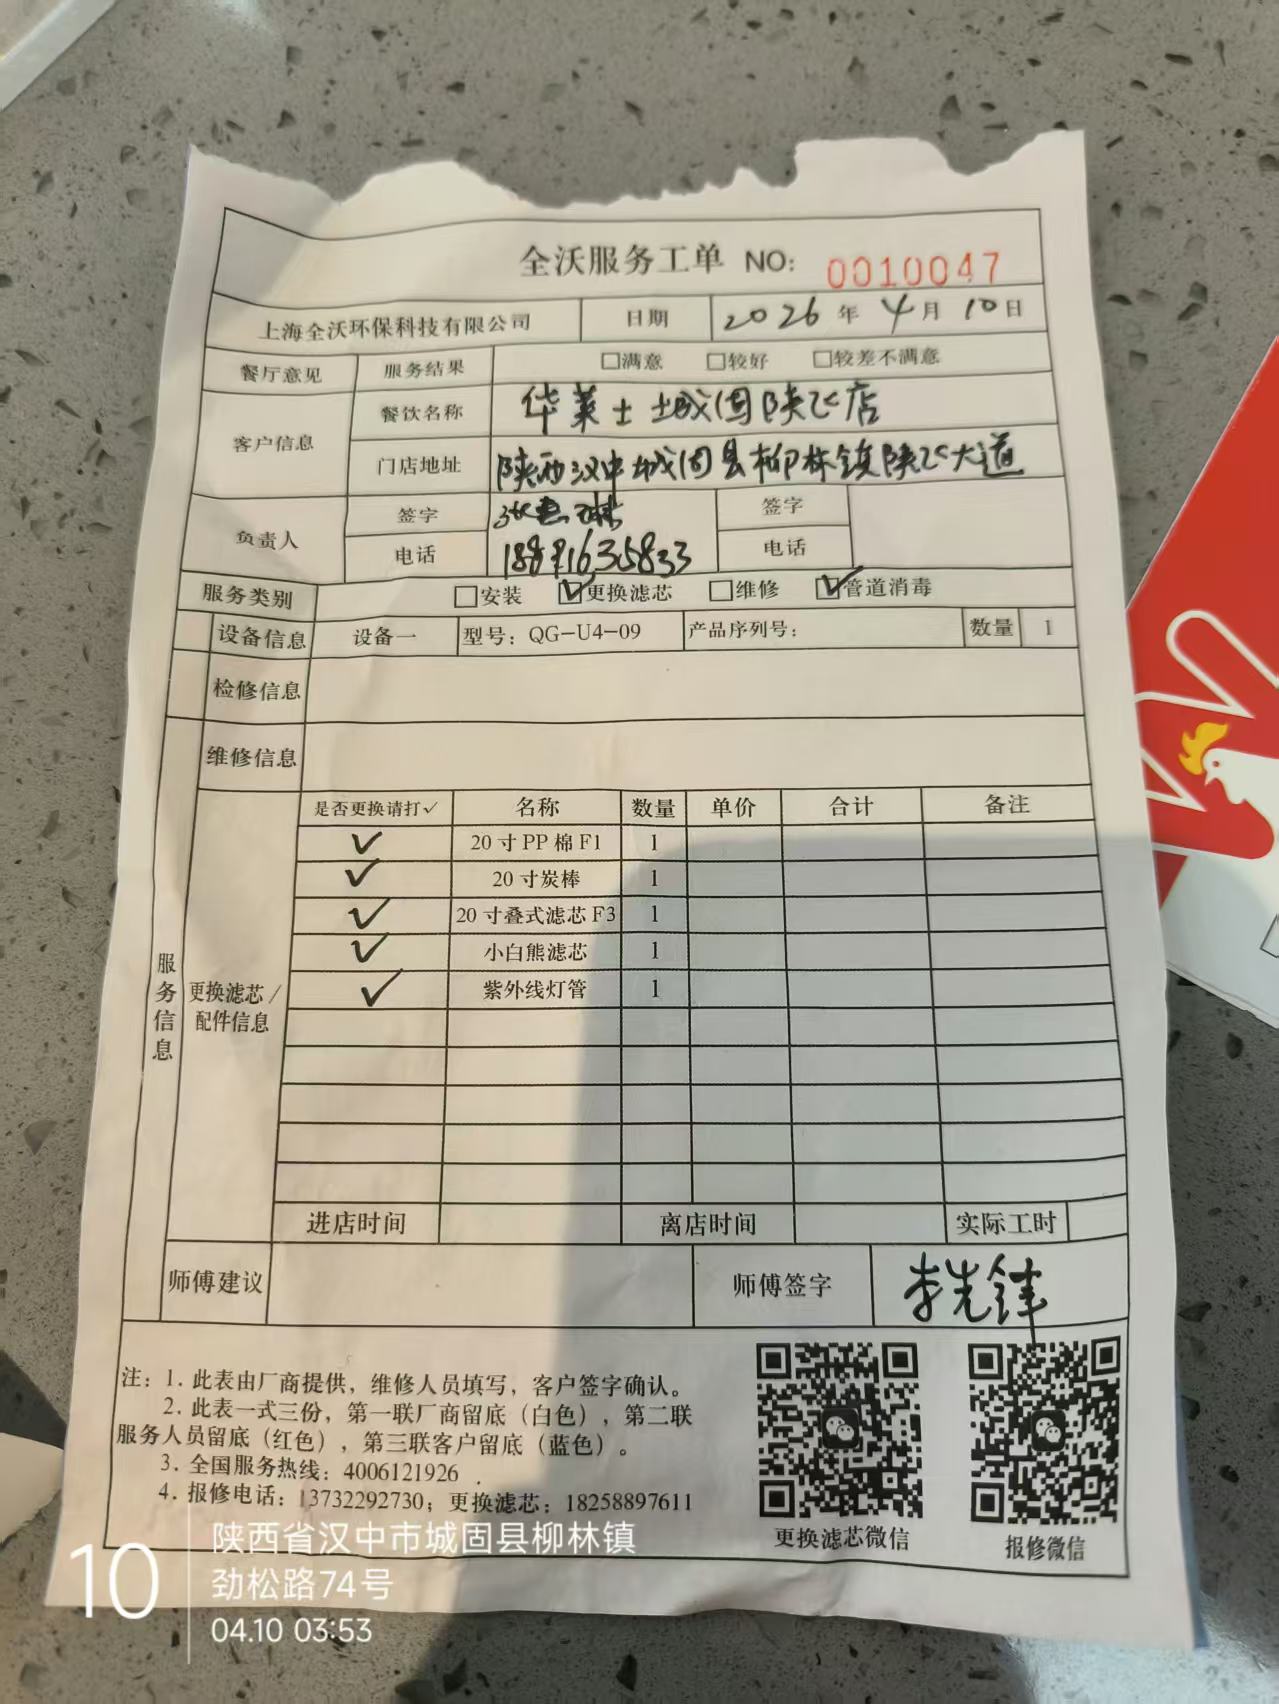 全沃服务工单 NO: 0010047
上海全沃环保科技有限公司 日期 2026 年 4 月 10 日
餐厅意见 服务结果 □满意 □较好 □较差不满意
客户信息 餐饮名称 华莱士城固陕飞店
门店地址 陕西汉中城固县柳林镇陕飞大道
负责人 签字 签字
电话 电话
服务类别 □安装 ☑更换滤芯 □维修 ☑管道消毒
设备信息 设备一 型号：QG-U4-09 产品序列号： 数量 1
检修信息
维修信息
服务信息
更换滤芯/
配件信息
是否更换请打✓ 名称 数量 单价 合计 备注
✓ 20寸PP棉F1 1
✓ 20寸炭棒 1
✓ 20寸叠式滤芯F3 1
✓ 小白熊滤芯 1
✓ 紫外线灯管 1
进店时间 离店时间 实际工时
师傅建议 师傅签字 李先锋
注：1. 此表由厂商提供，维修人员填写，客户签字确认。
2. 此表一式三份，第一联厂商留底（白色），第二联
服务人员留底（红色），第三联客户留底（蓝色）。
3. 全国服务热线：4006121926 .
4. 报修电话：13732292730；更换滤芯：18258897611
更换滤芯微信 报修微信
10
陕西省汉中市城固县柳林镇
劲松路74号
04.10 03:53